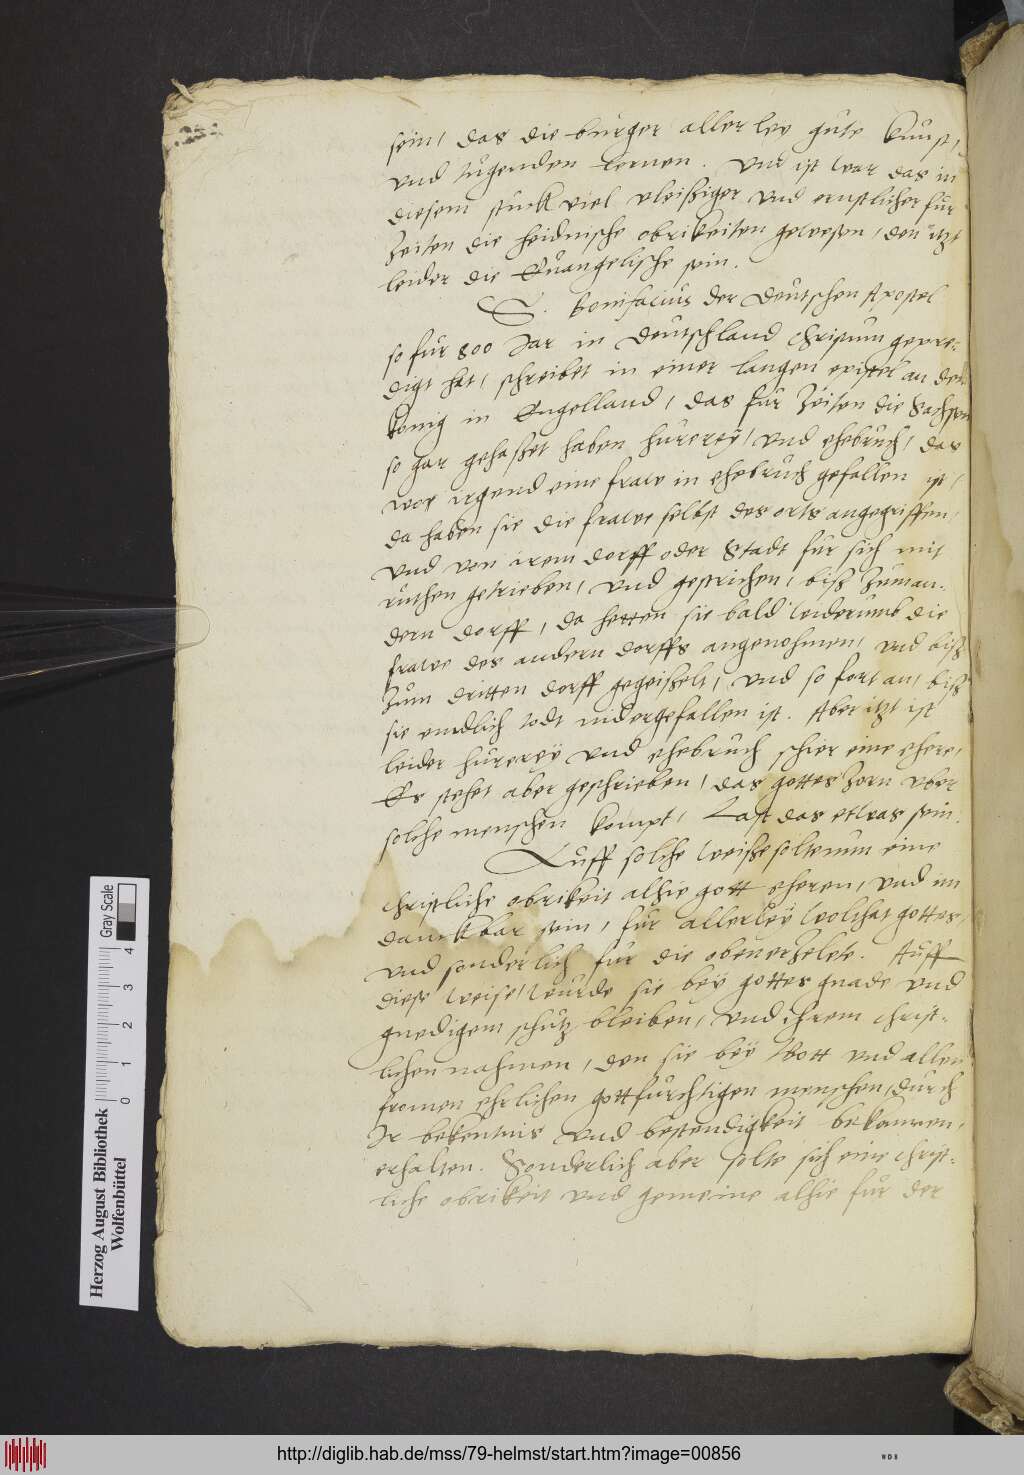 sein, das die burger allerley gute kunst,
und tugenden lernen. Und ist war das in
diesem stuck viel vleißiger und ernstlicher fur
Zeiten die heidnische obrikeiten gewesen, den itzt
leider die Euangelische sein.
S. Bonifacius der Deutschen Apostel
so fur 800 Jar in Deutschland Christum gepre-
digt hat, schreibet in einer langen epistel an den
konig in Engelland, das fur Zeiten die Sachsen
so gar gehaßet haben hurerey, und ehebruch, das
wor irgend eine frawe in ehebruch gefallen ist,
da haben sie die frawe selbst des orts angegriffen,
und von irem dorff oder Stadt fur sich mit
ruthen getrieben, und gestrichen, biß Zum an-
dern dorff, da hetten sie bald widerumb die
frawe des andern dorffs angenohmen, und biß
Zum dritten dorff gegeißelt, und so fort an, biß
sie endlich todt nidergefallen ist. Aber itzt ist
leider hurerey und ehebruch schier eine ehere,
Es stehet aber geschrieben, das gottes Zorn uber
solche menschen kompt, Last das etwas sein.
Auff solche weiße solte nun eine
christliche obrikeit alhie gott eheren, und im
danckbar sein, fur allerley wolthat gottes,
und sonderlich fur die obenerzelete. Auff
diese weise, wurde sie bey gottes gnade und
gnedigem schutz bleiben, und ihrem christ-
lichen nahmen, den sie bey Gott und allen
fromen ehrlichen gottfurchtigen menschen, durch
Ir bekentnis und bestendigkeit bekommen,
erhalten. Sonderlich aber solte sich eine christ-
liche obrikeit und gemeine alhie fur der
Herzog August Bibliothek
Wolfenbüttel
0 1 2 3 4
Gray Scale
http://diglib.hab.de/mss/79-helmst/start.htm?image=00856